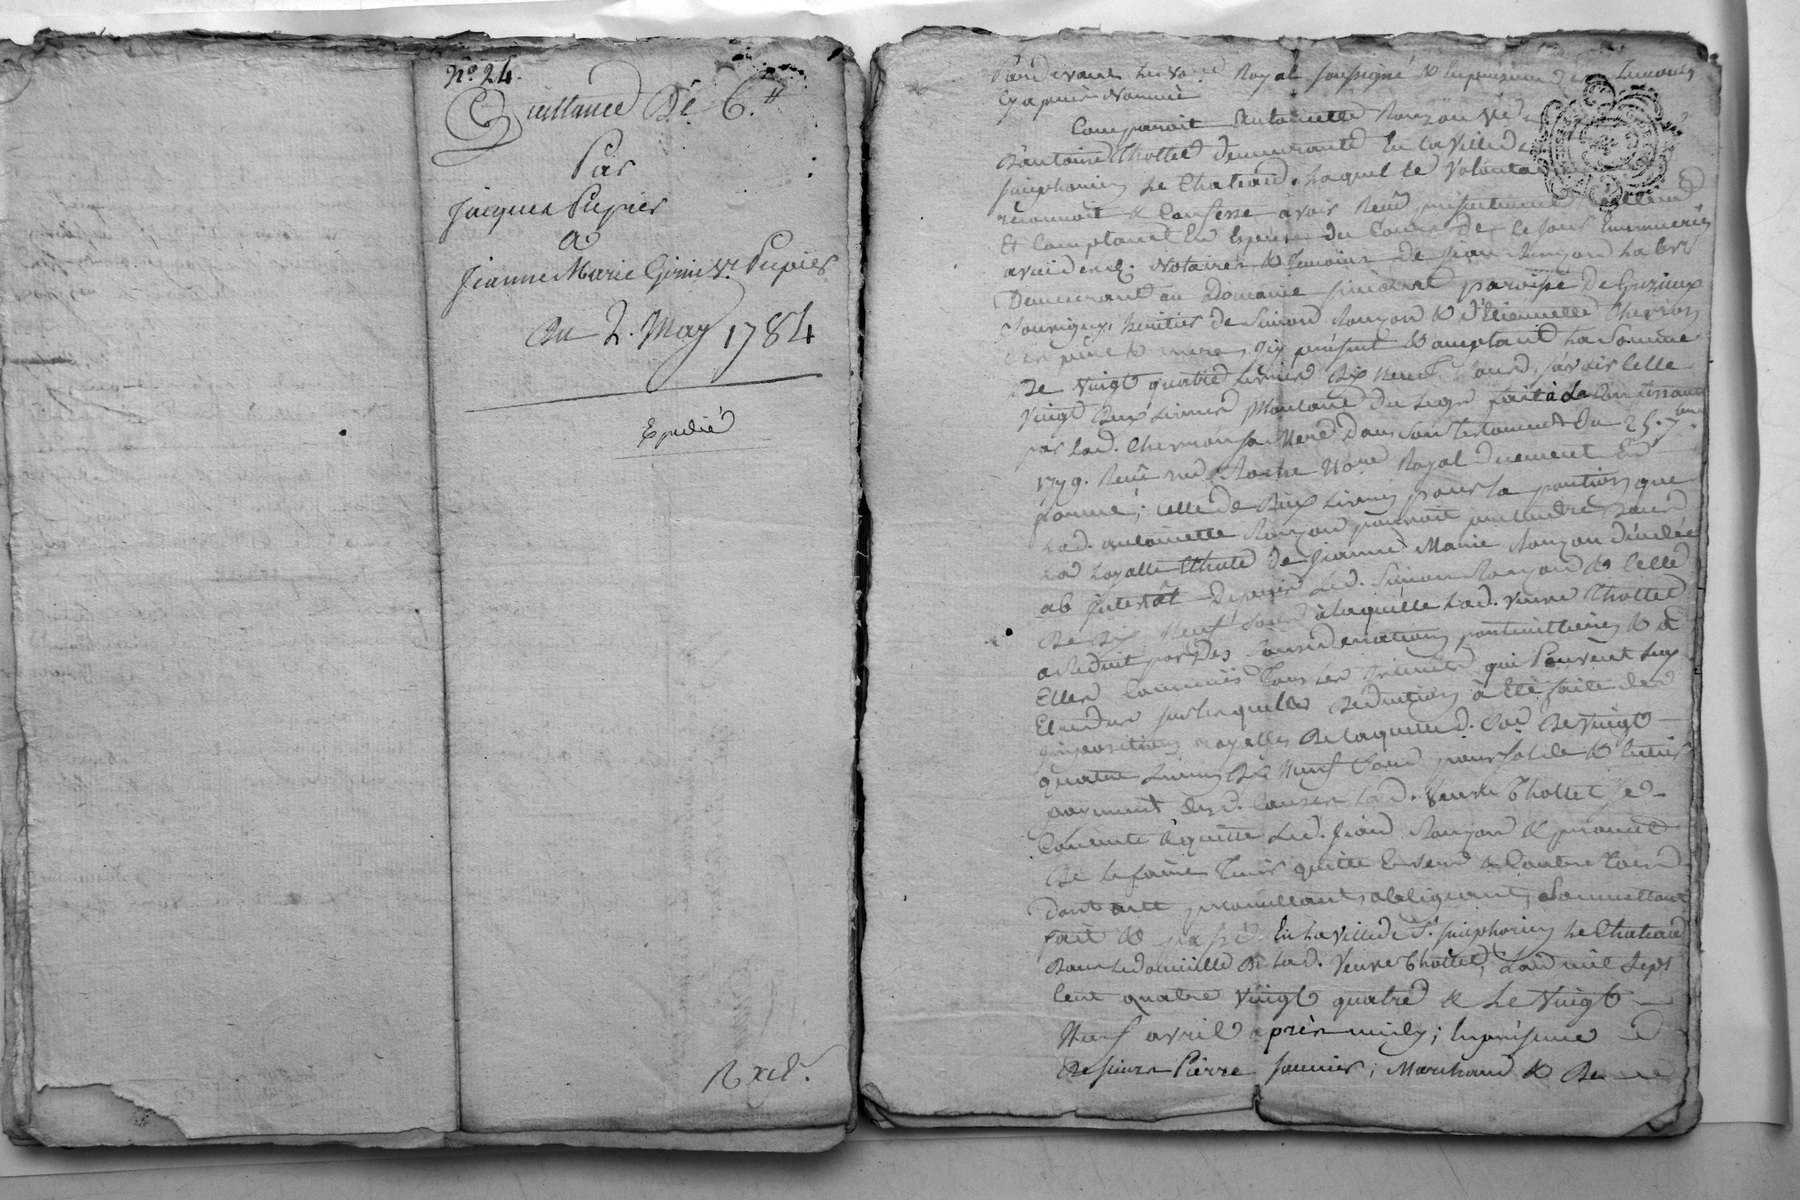 N.o 24.
Quittance De 6.#
Par
Jacques Pupier
a
Jeanne Marie Girin Ve Pupier
Du 2. May 1784
Expedié
Pardevant le No.re Royal soussigné & en presence des Temoins
Cy apres Nommés
Comparoit Antoinette Ronzon Ve
D'antoine Thollet demeurante En la Ville de
simphorien Le Chateau, Laquelle de Volonta
reconnoit & Confesse avoir Recu presentement
Et Comptant En Especes du Cours de Ce Jour
Notaire & Temoins De Jean Ronzon
Demeurant au Domaine paroisse De
heritier de Simon Ronzon & d'Etiennette Chervon
ses pere & mere, Icy present & acceptant La Somme
De Vingt quatre Livres Dix Neuf Sous, savoir Celle
Vingt Deux Livres Montant du Legs fait à La
par Lad. Chervon sa Mere Dans son testament Du 25. 7.bre
1779. Recu Notre No.re Royal duement En
forme; Celle de Deux Livres pour la portion que
Lad. antoinette Ronzon pouvoit pretendre Dans
La Loyalle Chute De Jeanne Marie Ronzon décédée
ab intestat Depuis Led. Simon Ronzon & Celle
De Dix Neuf Sous à laquelle Lad. veuve Thollet
a Reduit par Des Considerations particulieres & a
Elles Connues Tous Les Interets qui Peuvent Luy
Etre dus sur lesquelles Deduction à été faite des
Impositions royalles De laquelle d. So.e De Vingt
quatre Livres Dix Neuf Sous pour solde & Entier
payement desd. Causes Lad. Veuve Thollet se
Contente & quitte Led. Jean Ronzon & promet
De Le faire Tenir quitte Envers & Contre Tous
Dont acte promettant, obligeant, Soumettant
fait & passé En La Ville de St. simphorien Le Chateau
Dans Le domicille De Lad. Veuve Thollet, L'an mil Sept
Cent quatre Vingt quatre & Le Vingt
Neuf avril après midy; En presence
De sieurs Pierre Marchand & De